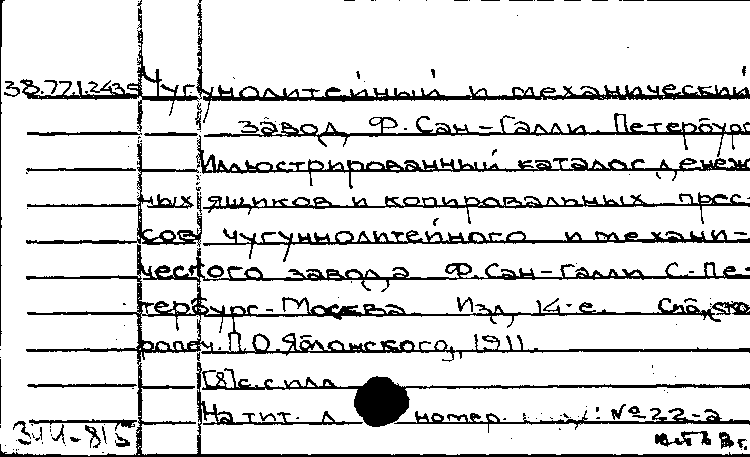 38.77.1.2435 Чугунолитейный и механический
завод Ф. Сан-Галли. Петербург
Иллюстрированный каталог денеж
ных ящиков и копировальных прес-
сов чугуннолитейного и механи-
ческого завода Ф. Сан-Галли С-Пе-
тербург-Москва. Изд. 14-е. Спб, ско
ропеч. П.О. Яблонского, 1911.
[8] с. с илл
На тит. л номер. : № 22-а
344-815